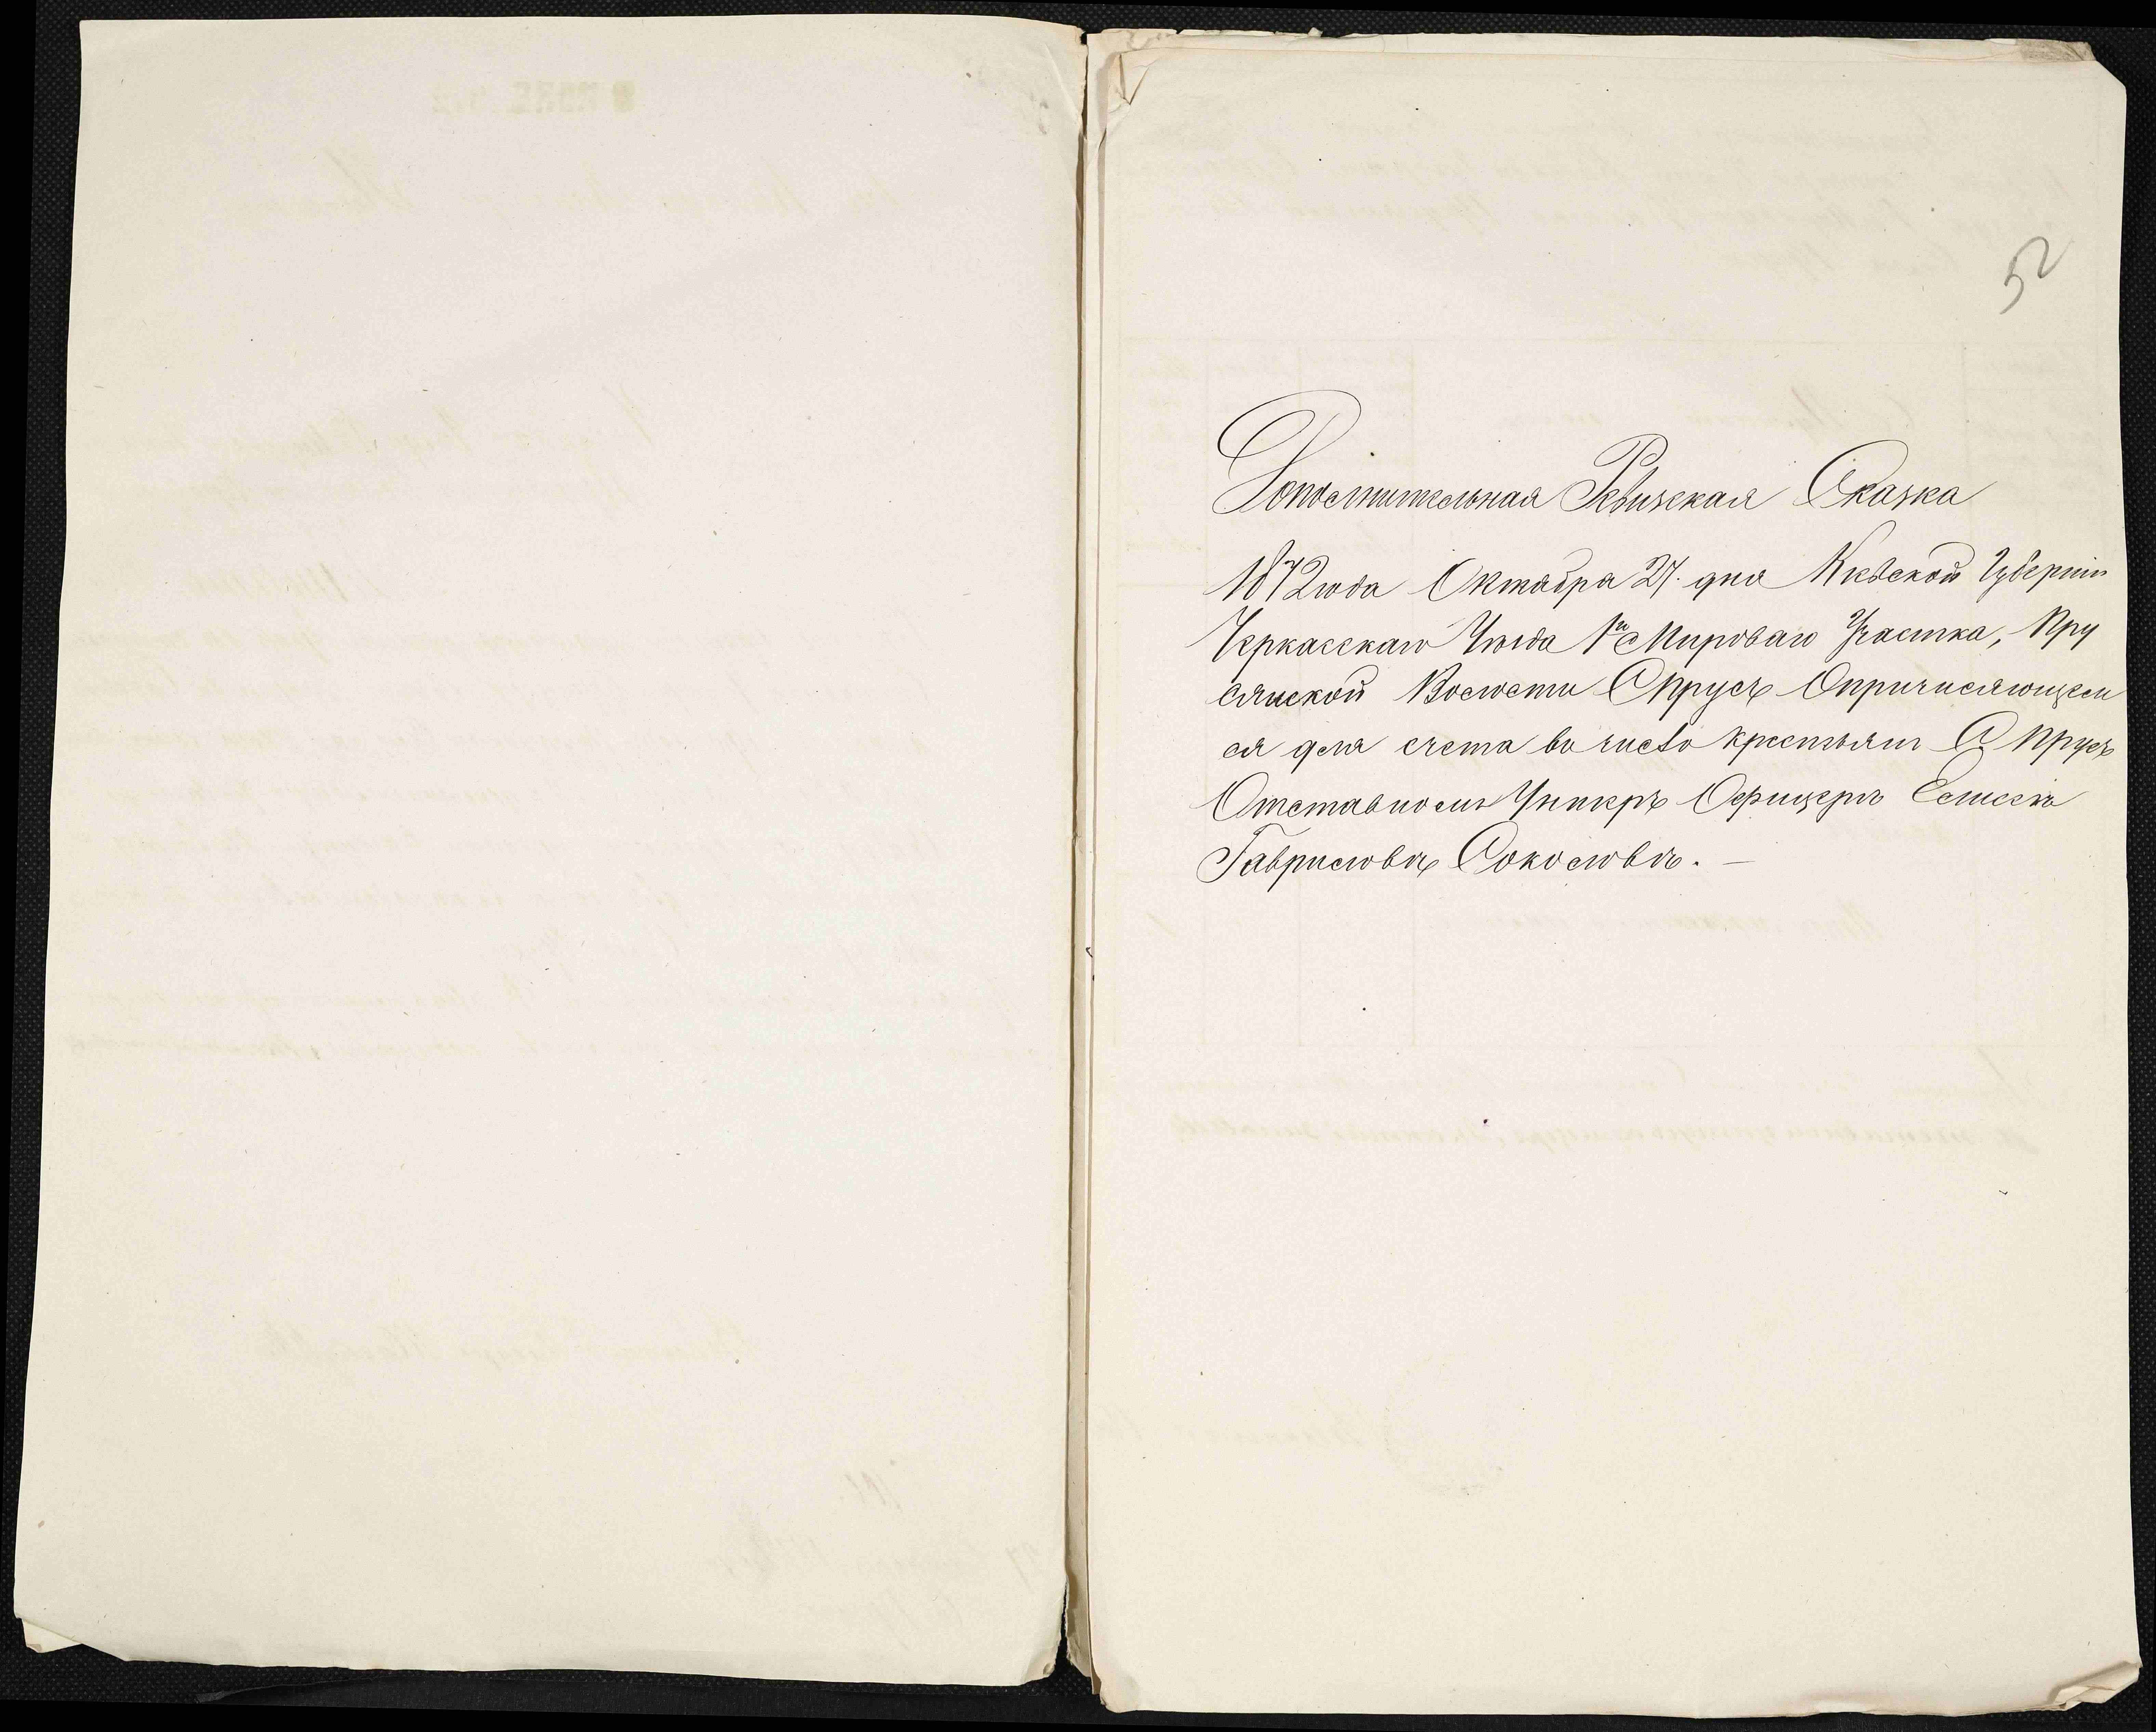 52
Дополнительная Ревизская Сказка
1872 года Октября 27. дня Кіевской Губерніи
Черкасскаго Уѣзда 1го Мироваго Участка, Пру
сянской Волости С Прусъ О причисляющем
ся для счета во число крестьянъ С Прусъ
Отставномъ Унтеръ Офицерѣ Елисеѣ
Гавриловѣ Соколовѣ. —